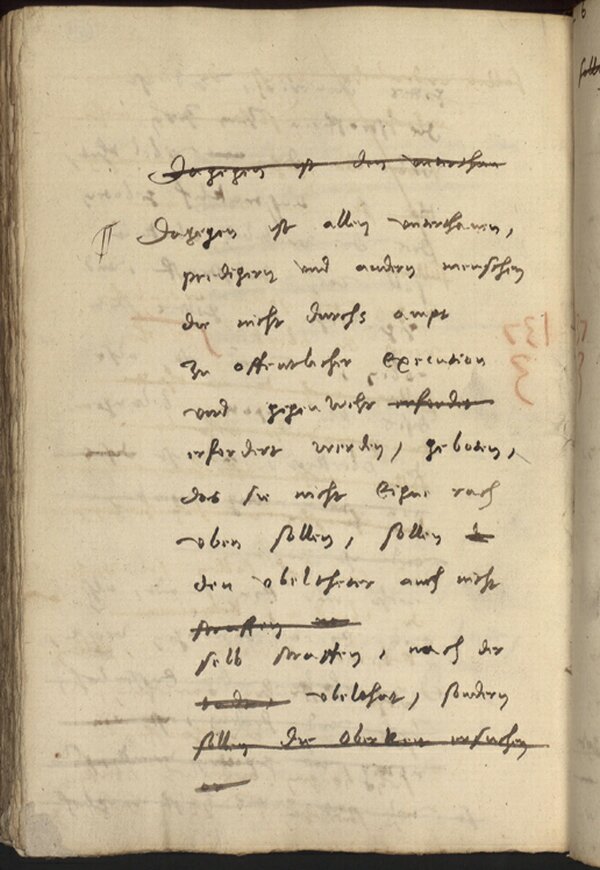 Dagegen ist den unterthan
Dagegen ist allen unterthanen,
predigern und andern menschen
die nicht durchs ampt
zu offentlicher Execution
und gegenwehr erfordert
erfordert werden, geboten,
das sie nicht Eigne rach
oben sollen, sollen d
den obeltheter auch nicht
straffen
selb straffen, nach der
obelthat, sondern
sollen die Oberkeit ersuchen
137
3